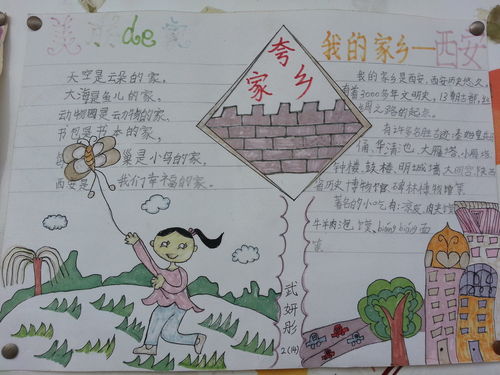 美丽de家
天空是云朵的家。
大海是鱼儿的家。
动物园是动物的家。
书包是书本的家，
巢是小鸟的家。
西安是我们幸福的家。
夸家乡
我的家乡—西安
我的家乡是西安。西安历史悠久，
有着3000多年文明史，13朝古都，丝
绸之路的起点。
有许多名胜古迹：秦始皇兵马
俑、华清池、大雁塔、小雁塔、
钟楼、鼓楼、明城墙、大明宫、陕西
省历史博物馆、碑林博物馆等
著名的小吃有：凉皮、肉夹馍、
牛羊肉泡馍、biáng biáng面
等
武妍彤
2(14)